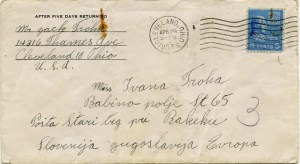 AFTER FIVE DAYS RETURN TO
Mr Jack Troha
14816 Thames Ave
Cleveland 10 Ohio
U.S.A.
CLEVELAND, OHIO
APR
5 CENTS 5
Miss Ivana Troha
Babino polje St 65
3
Pošta Stari trg pri Rakeku
Slovenija Jugoslavija Evropa